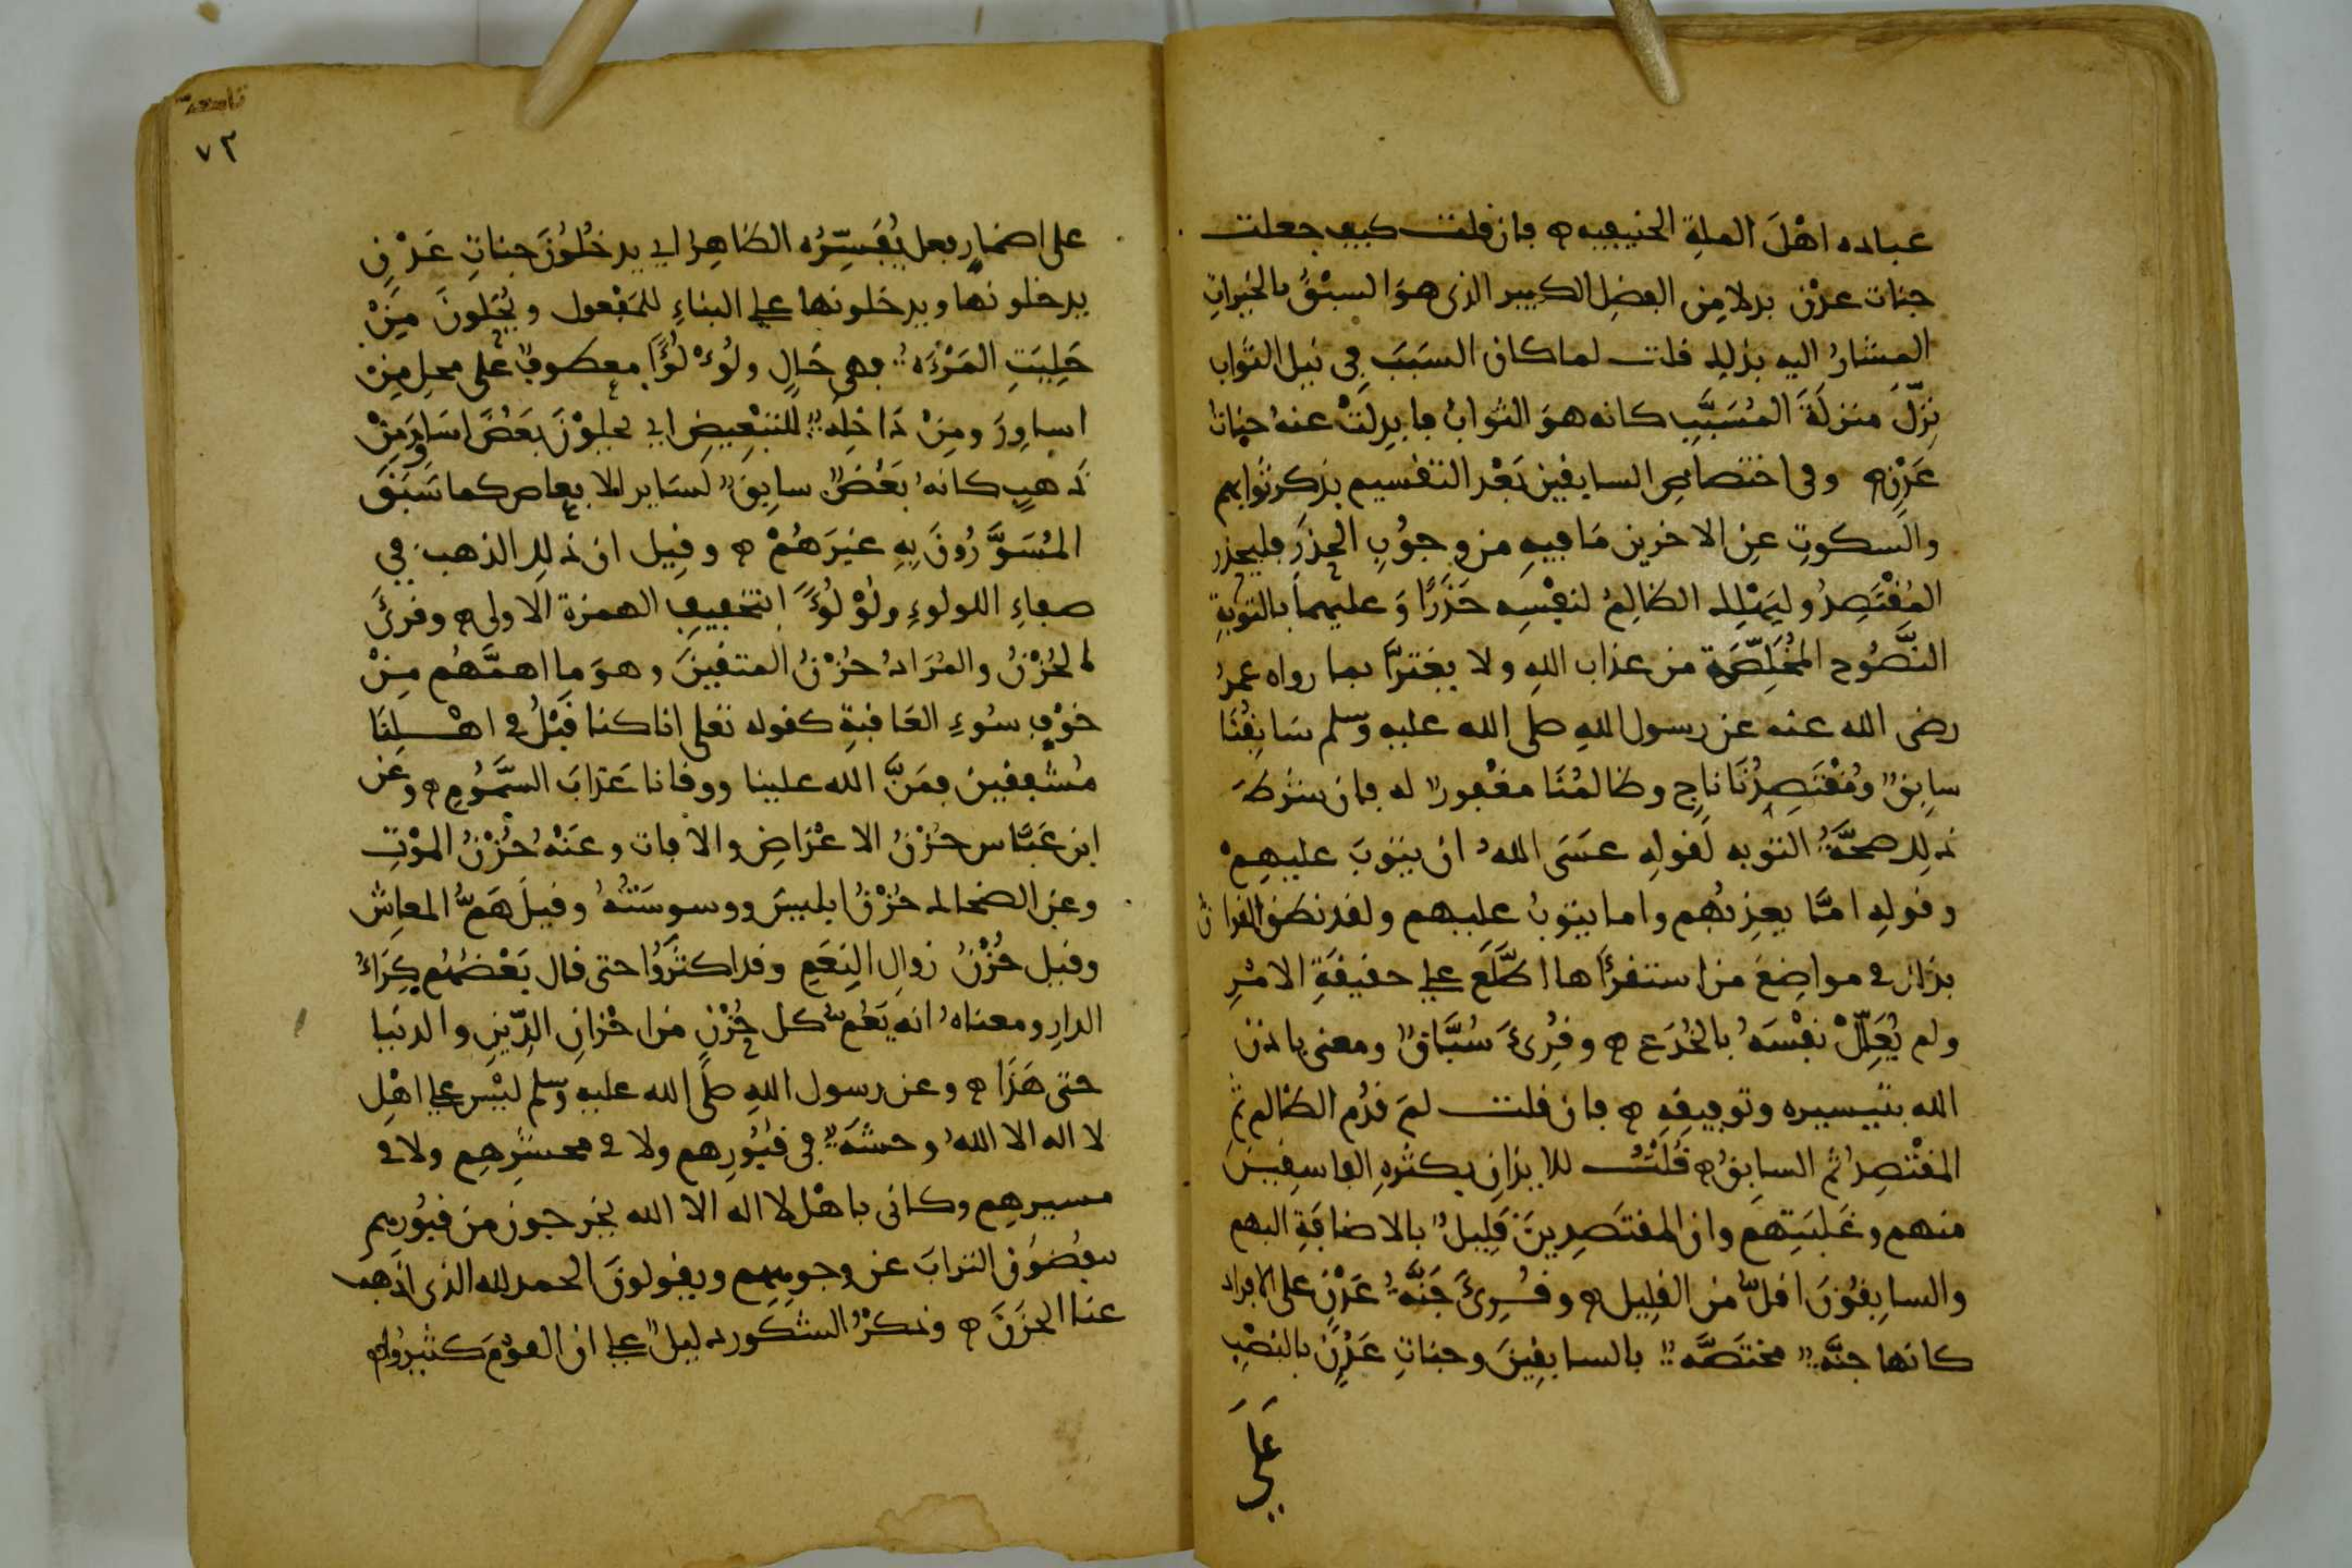 عباده اهْلَ الملةِ الحنيفيه ه فان قلت كيف جعلت
جنات عدْن بدلا مِن الفضلِ الكبير الذى هوَ السبْقُ بالخيراتِ
المشارُ اليه بذلك قلت لما كان السَبَبَ في نيل الثواب
نزّلَ منزلَةَ المُسَبَّبِ كانه هوَ الثوابُ فابدِلَتْ عنهُ جنات
عَدْنٍ ه وفى اختصاصِ السابقين بَعْدَ التقسيم بذكر ثوابهم
والسكوتِ عن الاخرين مَا فيهِ من وجوُبِ الحذَرِ فليحذر
المُقْتَصِدُ وليَهْلِك الظالِمُ لنفْسِه حَذَرًا وَعليهما بالتوبةِ
النَّصُوح المُخَلِّصَة من عذاب اللهِ ولا يغترّا بما رواه عمرُ
رضى الله عنه عن رسول اللهِ صلى الله عليه وسلم سَابِقُنَا
سابِق ومُقْتَصِدُنَا ناجٍ وظالمُنَا مغْفور له فان شرط
ذلك صحّةُ التوبه لقولِه عسَى اللهُ ان يتوبَ عليهِمْ
وقولِه امَّا يعذبُهم واما يتوبُ عليهم ولقد نطق القران
بذلك في مواضِعَ من استقرأها اطّلَع على حقيقَةِ الامْرِ
ولم يُعَلِّلْ نفْسَهُ بالخُدَع ه وقُرِئَ سُبَّاقٌ ومعنى باذن
الله بتيسيره وتوفيقِهِ ه فان قلت لمَ قدّم الظالم ثم
المقْتصِد ثم السابِقُ ه قُلْتُ للايذانِ بكثرهِ الفاسِقِينَ
منهم وغَلبَتِهم وان المقتصِدِينَ قَلِيلٌ بالاضافةِ اليهم
والسابِقُونَ اقلّ من القلِيلِ ه وقُرِئَ جَنّةُ عَدْنٍ على الافراد
كانها جنّة مختَصّة بالسابقِينَ وجناتِ عَدْنٍ بالنصْبِ
عَلَى
٧٣
على اضمارِ فعل يُفَسِّرُه الظاهِر اي يدخُلُونَ جناتِ عَدْنٍ
يدخلونها ويدخلونها على البناءِ للمَفْعول ويُحَلونَ مِنْ
حَلِيَتِ المَرْءَه فهى حَالٍ ولُؤْلُؤًا معطوف على محلِ مِن
اساوِرَ ومِنْ دَاخِله للتبْعِيضِ اي يحلوْنَ بَعْضَ اسَاوِرَ مِنْ
ذهبٍ كانهُ بَعْضٌ سابِقٌ لسَاير الابعاض كما سَبَقَ
المُسَوَّرُونَ بِهِ غيَرَهُمْ ه وقيل ان ذلك الذهب في
صفاءِ اللولوءِ ولُوْلُؤًا بتخفيفِ الهمزة الاولى ه وقرئَ
الحُزْنُ والمُرَادُ حُزْنُ المتقينَ وهوَ ما اهمَّهُم مِنْ
خوْفِ سُوءِ العَاقبةِ كقوله تعلى انا كنا قَبْلُ في اهْلِنَا
مُشفِقين فمَنَّ الله علينا ووقانا عَذابَ السَّمُومِ ه وعن
ابن عَبّاس حُزْنُ الاعْرَاضِ والافات وعَنْهُ حُزْنُ المَوْتِ
وعن الضحاك حُزْنُ ابليسَ ووسوسَتُهُ وقيلَ هَمُّ المعاش
وقيل حُزْنُ زوالِ النِعَمِ وقد اكثَرُوا حتى قال بَعْضُهُم كِرَاءُ
الدارِ ومعناهُ انه يَعُم كل حُزْنٍ من احْزانِ الدِّينِ والدنيا
حتى هَذا ه وعن رسول اللهِ صلى الله عليه وسلم ليْس على اهْلِ
لا اله الا اللهُ وحشَة في قبُورِهم ولا في محشرِهِم ولا في
مسيرِهِم وكانى باهْل لا اله الا الله يخرجون من قبُورهم
ينفُضوُن الترابَ عن وجوههم ويقولونَ الحمد لله الذى اذهب
عنا الحزَنَ ه وذكرُ الشكور دليل على ان القوْمَ كثيروا